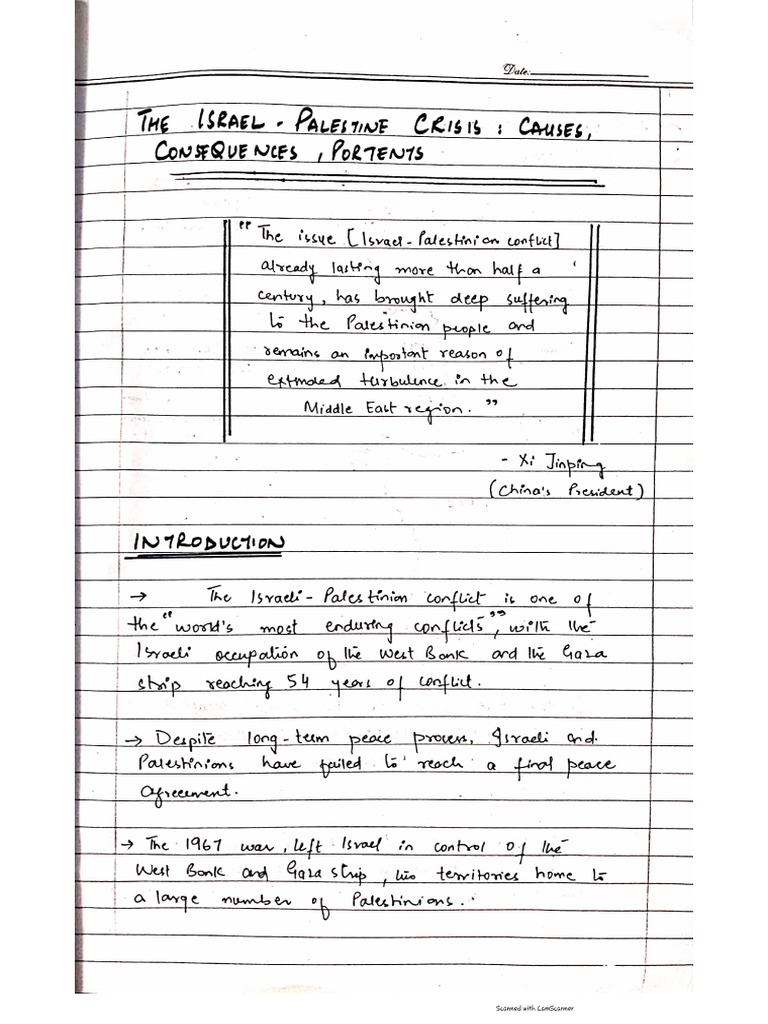 Date:
THE ISRAEL - PALESTINE CRISIS : CAUSES,
CONSEQUENCES, PORTENTS
"The issue [Israel-Palestinian conflict]
already lasting more than half a
century, has brought deep suffering
to the Palestinian people and
remains an important reason of
extended turbulence in the
Middle East region."
- Xi Jinping
(China's President)
INTRODUCTION
→ The Israeli - Palestinian conflict is one of
the "world's most enduring conflicts", with the
Israeli occupation of the West Bank and the Gaza
strip reaching 54 years of conflict.
→ Despite long-term peace process, Israeli and
Palestinians have failed to reach a final peace
agreement.
→ The 1967 war, left Israel in control of the
West Bank and Gaza strip, two territories home to
a large number of Palestinians.
Scanned with CamScanner